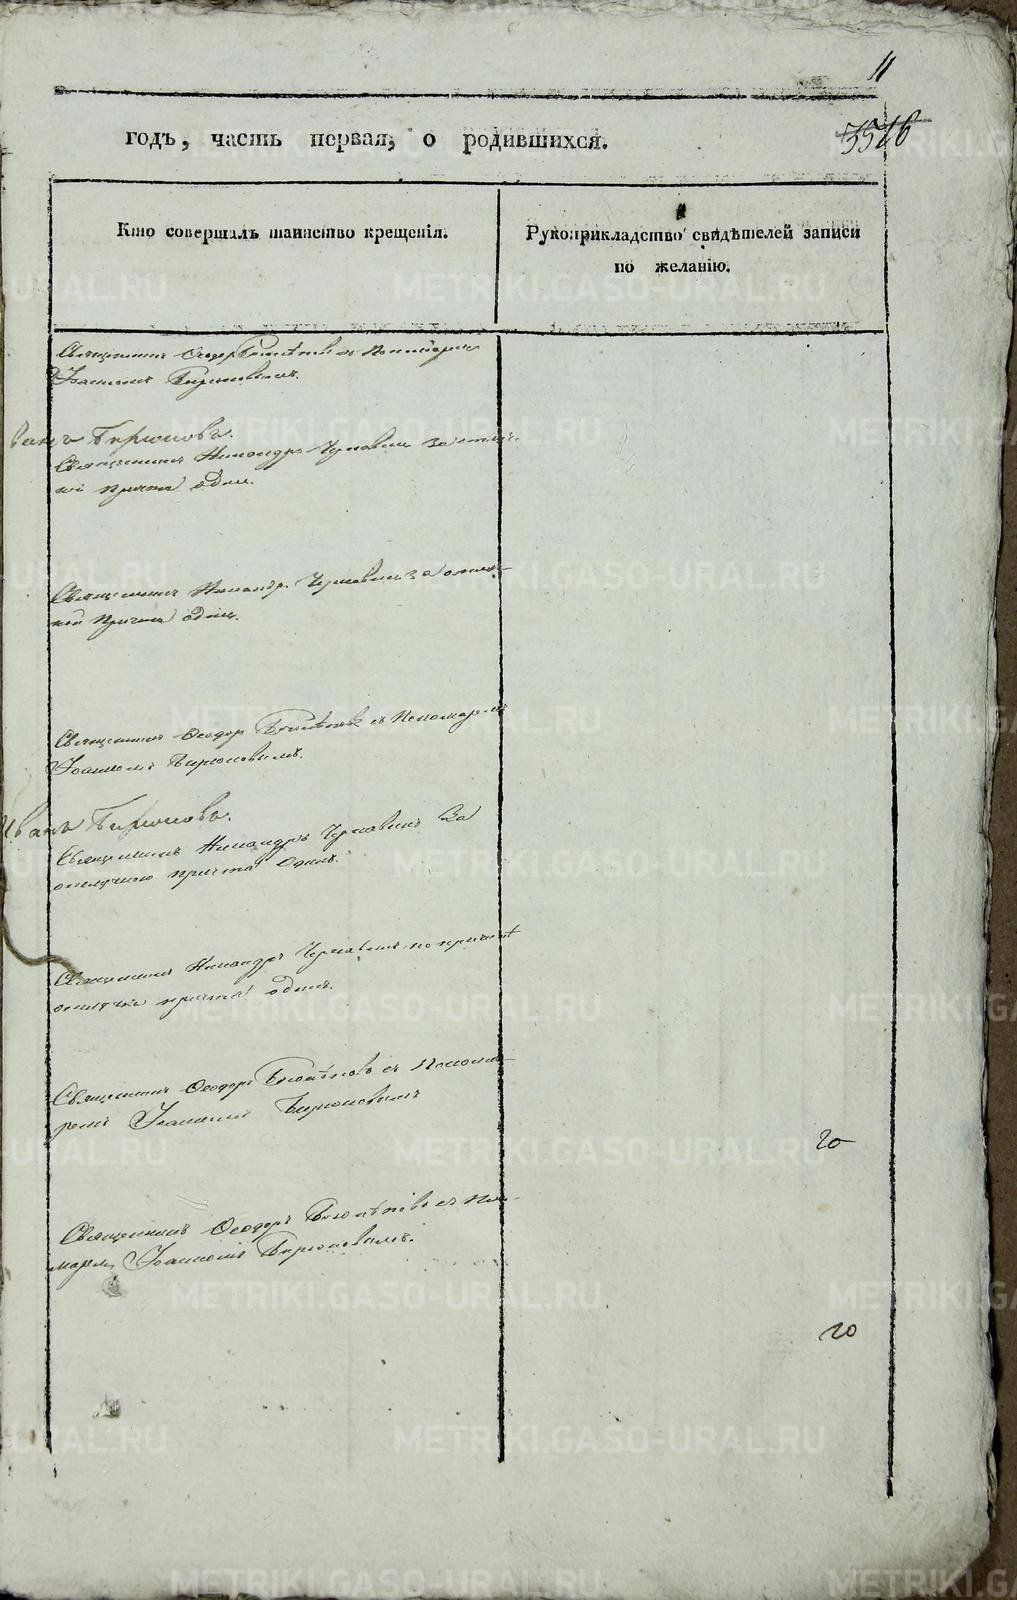 11
годъ, часть первая, о родившихся.
Кто совершалъ таинство крещенія.
Рукоприкладство свидѣтелей записи
по желанію.
Священникъ Ѳеодоръ с Пономаремъ
Іоанномъ Бирюковымъ.
Бирюковъ.
Священникъ Никандръ Чернавинъ За отлуч-
кой причта одинъ.
Священникъ Никандръ Чернавинъ за отлуч-
кой Причта одинъ.
Священникъ Ѳеодоръ съ Пономаремъ
Іоанномъ Бирюковымъ.
Иванъ Бирюковъ.
Священникъ Никандръ Чернавинъ За
отлучкою причта Одинъ.
Священникъ Никандръ Чернавинъ по причинѣ
отлучки причта одинъ.
Священникъ Ѳеодоръ съ Понома-
ремъ Іоанномъ Бирюковымъ
20
Священникъ Ѳеодоръ съ Поно-
маремъ Іоанномъ Бирюковымъ.
20
METRIKI.GASO-URAL.RU